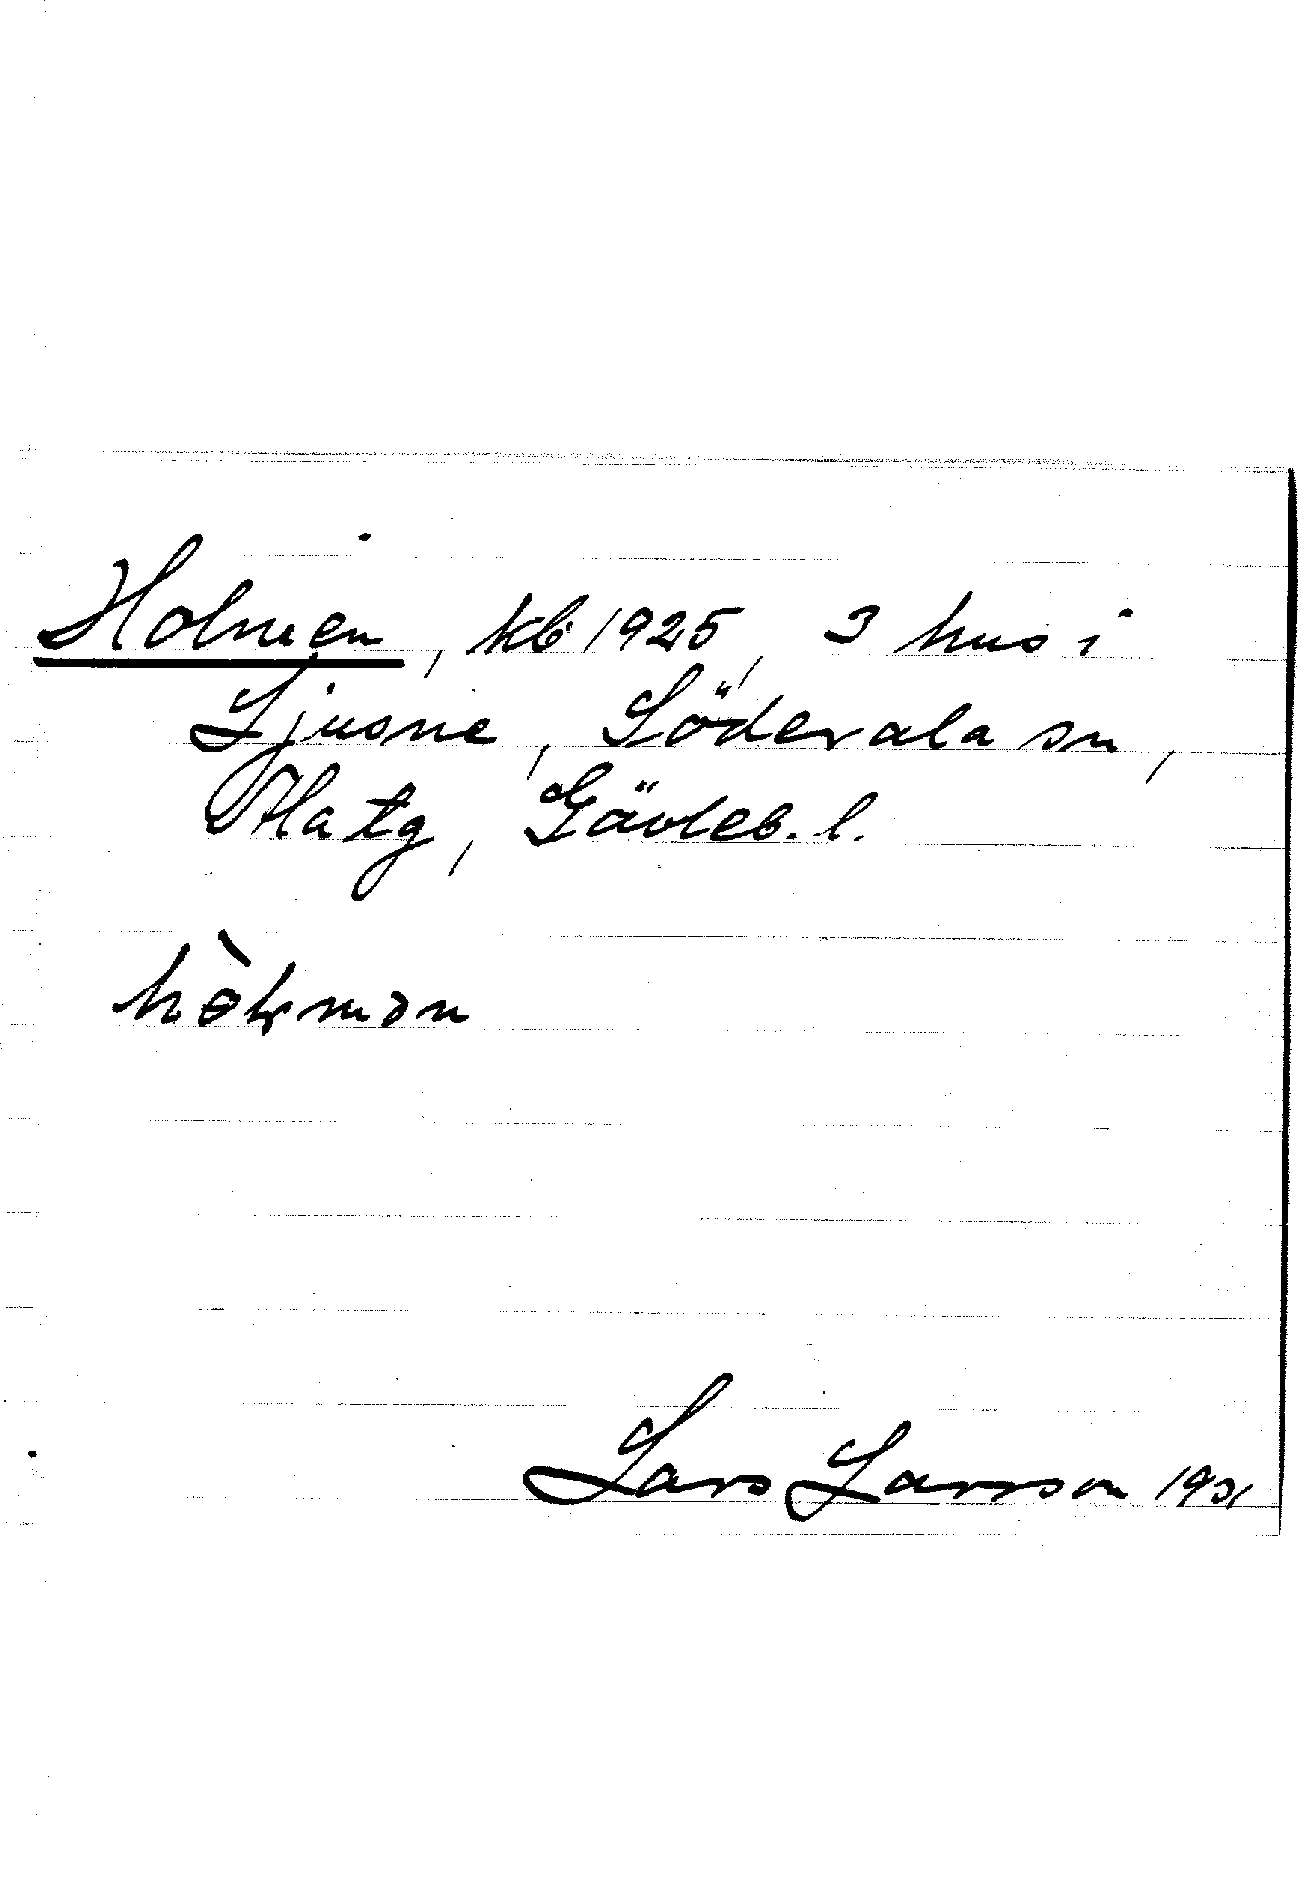 Holmen, kb 1925, 3 hus i
Ljusne, Söderala sn,
Hatg, Gävleb. l.
Lars Larsson 1931